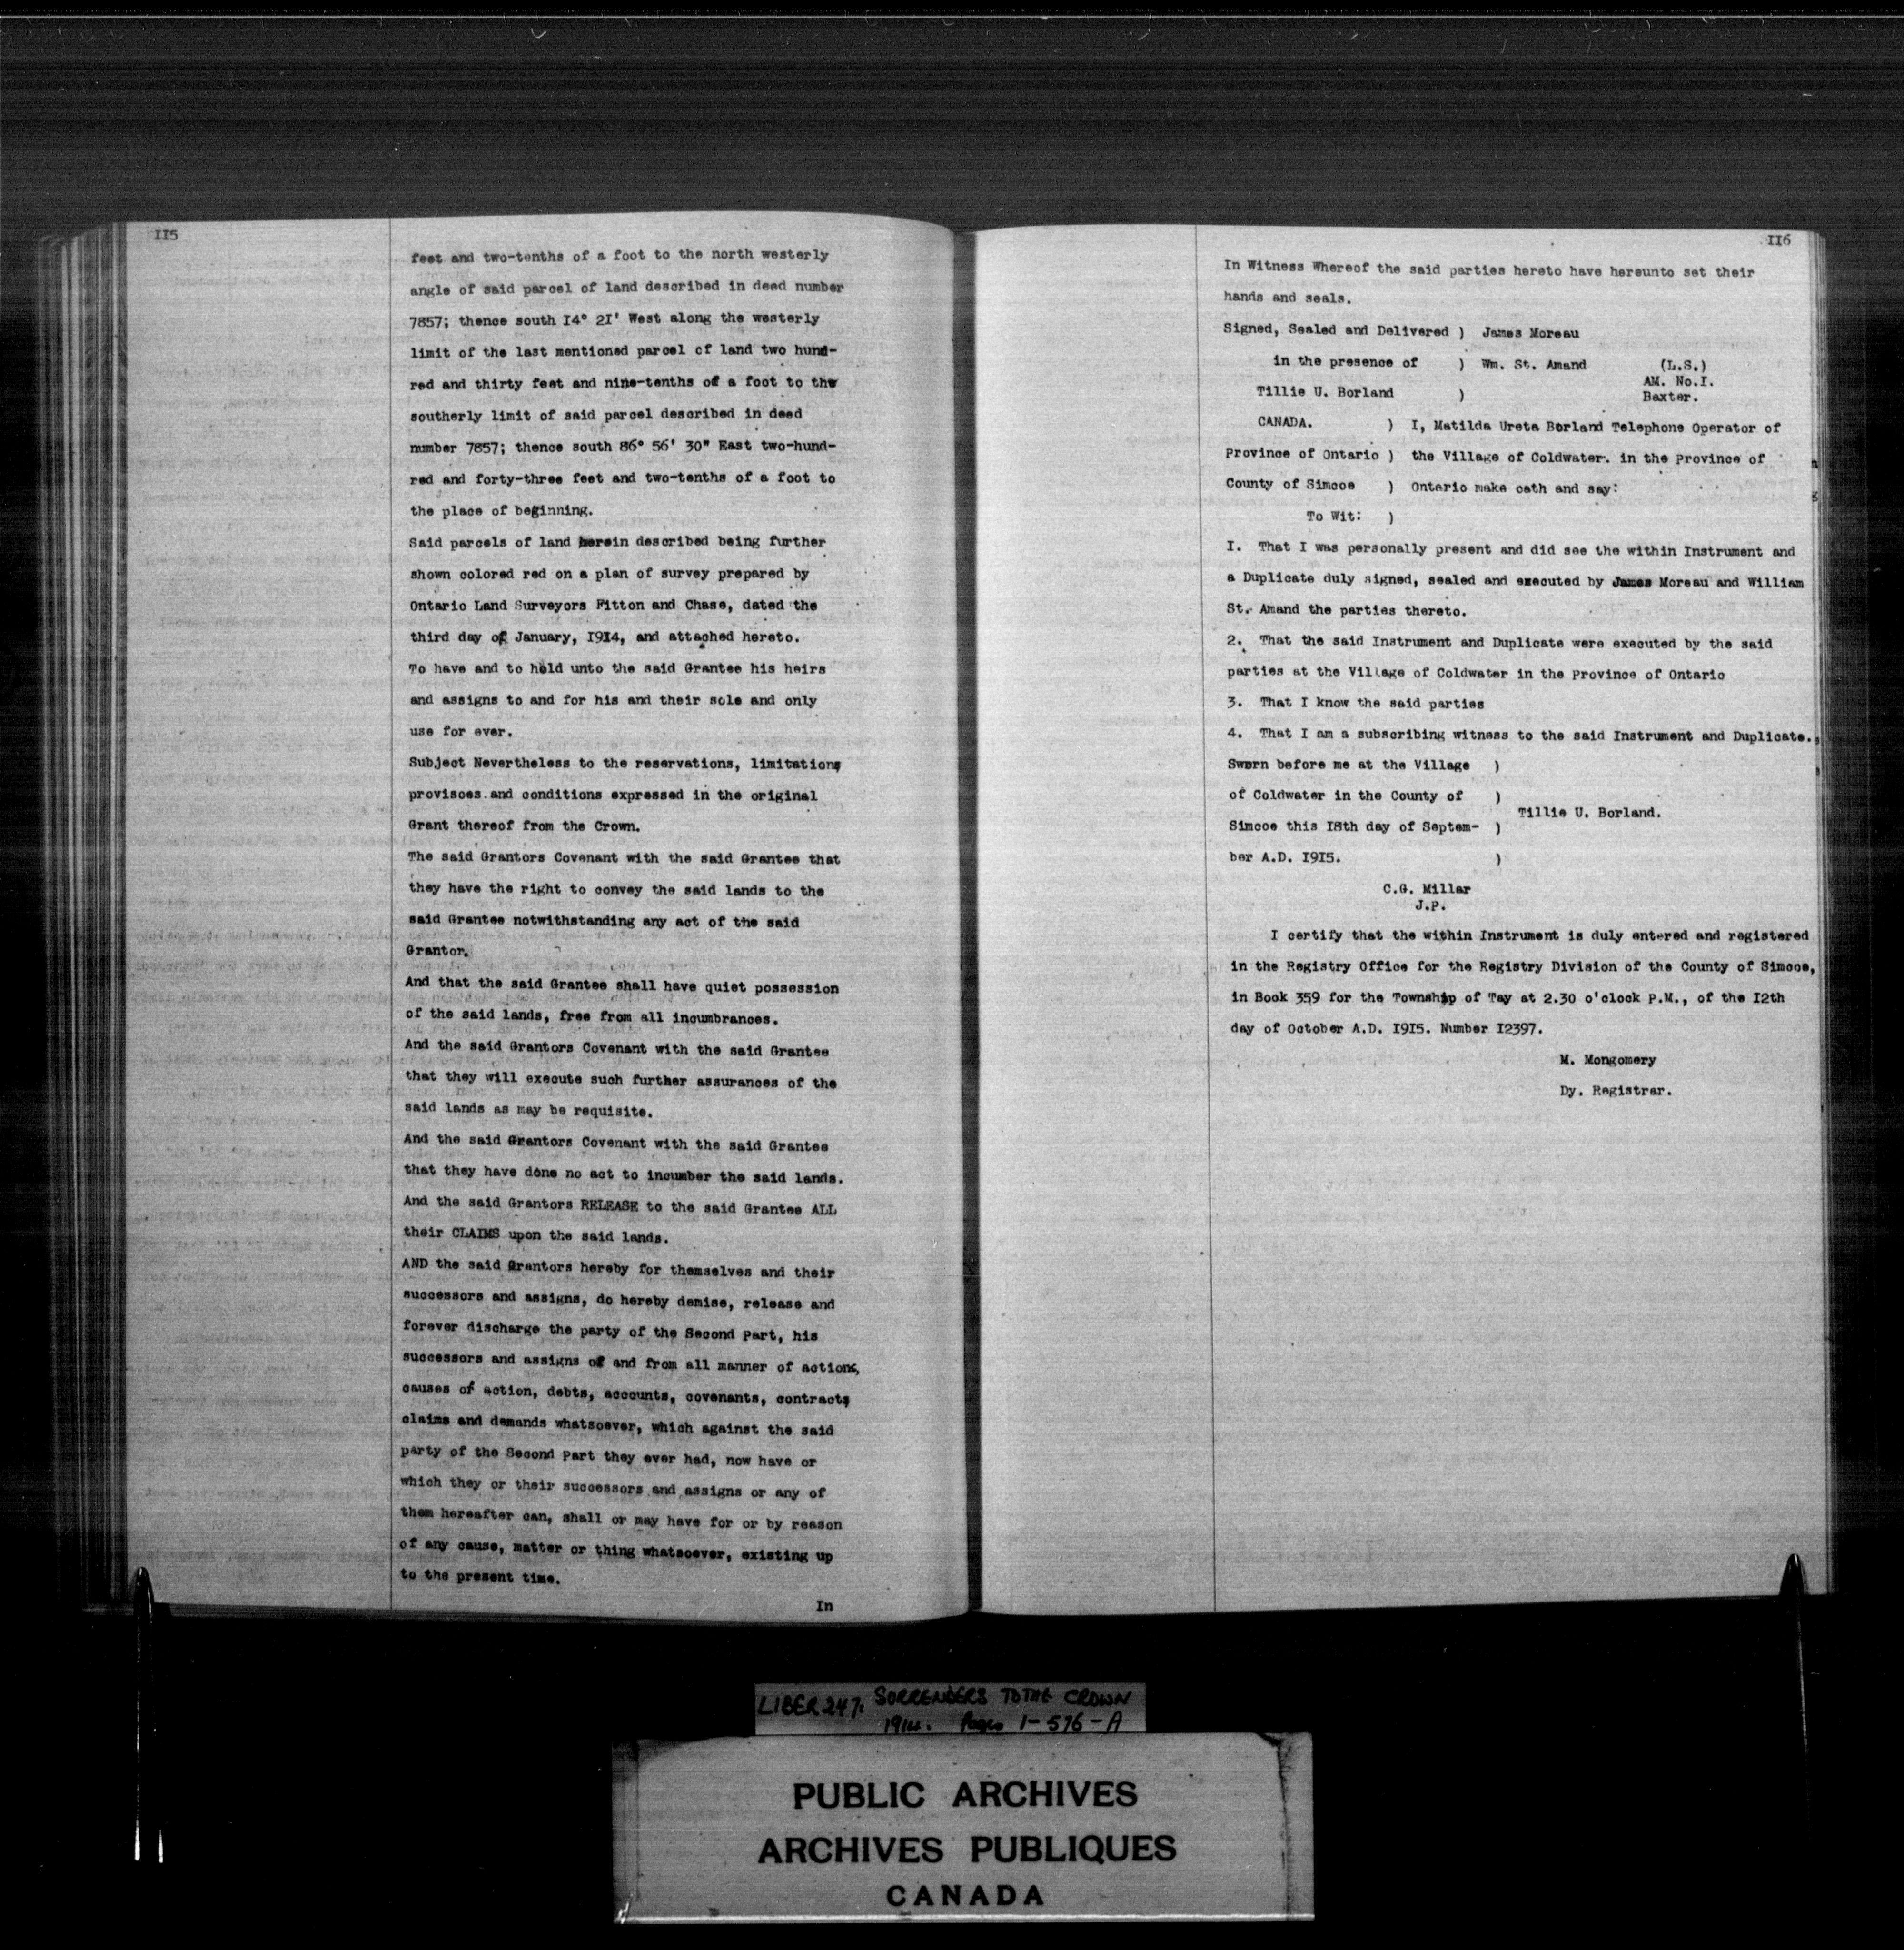 115
feet and two-tenths of a foot to the north westerly
angle of said parcel of land described in deed number
7857; thence south I4° 2I' West along the westerly
limit of the last mentioned parcel of land two hund-
red and thirty feet and nine-tenths of a foot to the
southerly limit of said parcel described in deed
number 7857; thence south 86° 56' 30" East two-hund-
red and forty-three feet and two-tenths of a foot to
the place of beginning.
Said parcels of land herein described being further
shown colored red on a plan of survey prepared by
Ontario Land Surveyors Fitton and Chase, dated the
third day of January, I9I4, and attached hereto.
To have and to hold unto the said Grantee his heirs
and assigns to and for his and their sole and only
use for ever.
Subject Nevertheless to the reservations, limitations,
provisoes and conditions expressed in the original
Grant thereof from the Crown.
The said Grantors Covenant with the said Grantee that
they have the right to convey the said lands to the
said Grantee notwithstanding any act of the said
Grantor.
And that the said Grantee shall have quiet possession
of the said lands, free from all incumbrances.
And the said Grantors Covenant with the said Grantee
that they will execute such further assurances of the
said lands as may be requisite.
And the said Grantors Covenant with the said Grantee
that they have done no act to incumber the said lands.
And the said Grantors RELEASE to the said Grantee ALL
their CLAIMS upon the said lands.
AND the said Grantors hereby for themselves and their
successors and assigns, do hereby demise, release and
forever discharge the party of the Second Part, his
successors and assigns of and from all manner of actions,
causes of action, debts, accounts, covenants, contracts,
claims and demands whatsoever, which against the said
party of the Second Part they ever had, now have or
which they or their successors and assigns or any of
them hereafter can, shall or may have for or by reason
of any cause, matter or thing whatsoever, existing up
to the present time.
In
116
In Witness Whereof the said parties hereto have hereunto set their
hands and seals.
Signed, Sealed and Delivered ) James Moreau
in the presence of ) Wm. St. Amand (L.S.)
AM. No.I.
Tillie U. Borland ) Baxter.
CANADA. ) I, Matilda Ureta Borland Telephone Operator of
Province of Ontario ) the Village of Coldwater. in the Province of
County of Simcoe ) Ontario make oath and say:
To Wit: )
I. That I was personally present and did see the within Instrument and
a Duplicate duly signed, sealed and executed by James Moreau and William
St. Amand the parties thereto.
2. That the said Instrument and Duplicate were executed by the said
parties at the Village of Coldwater in the Province of Ontario
3. That I know the said parties
4. That I am a subscribing witness to the said Instrument and Duplicate.
Sworn before me at the Village )
of Coldwater in the County of )
Tillie U. Borland.
Simcoe this I8th day of Septem- )
ber A.D. I9I5. )
C.G. Millar
J.P.
I certify that the within Instrument is duly entered and registered
in the Registry Office for the Registry Division of the County of Simcoe,
in Book 359 for the Township of Tay at 2.30 o'clock P.M., of the I2th
day of October A.D. I9I5. Number I2397.
M. Mongomery
Dy. Registrar.
LIBER 247. SURRENDERS TO THE CROWN
1914. Pages 1-576-A
PUBLIC ARCHIVES
ARCHIVES PUBLIQUES
CANADA